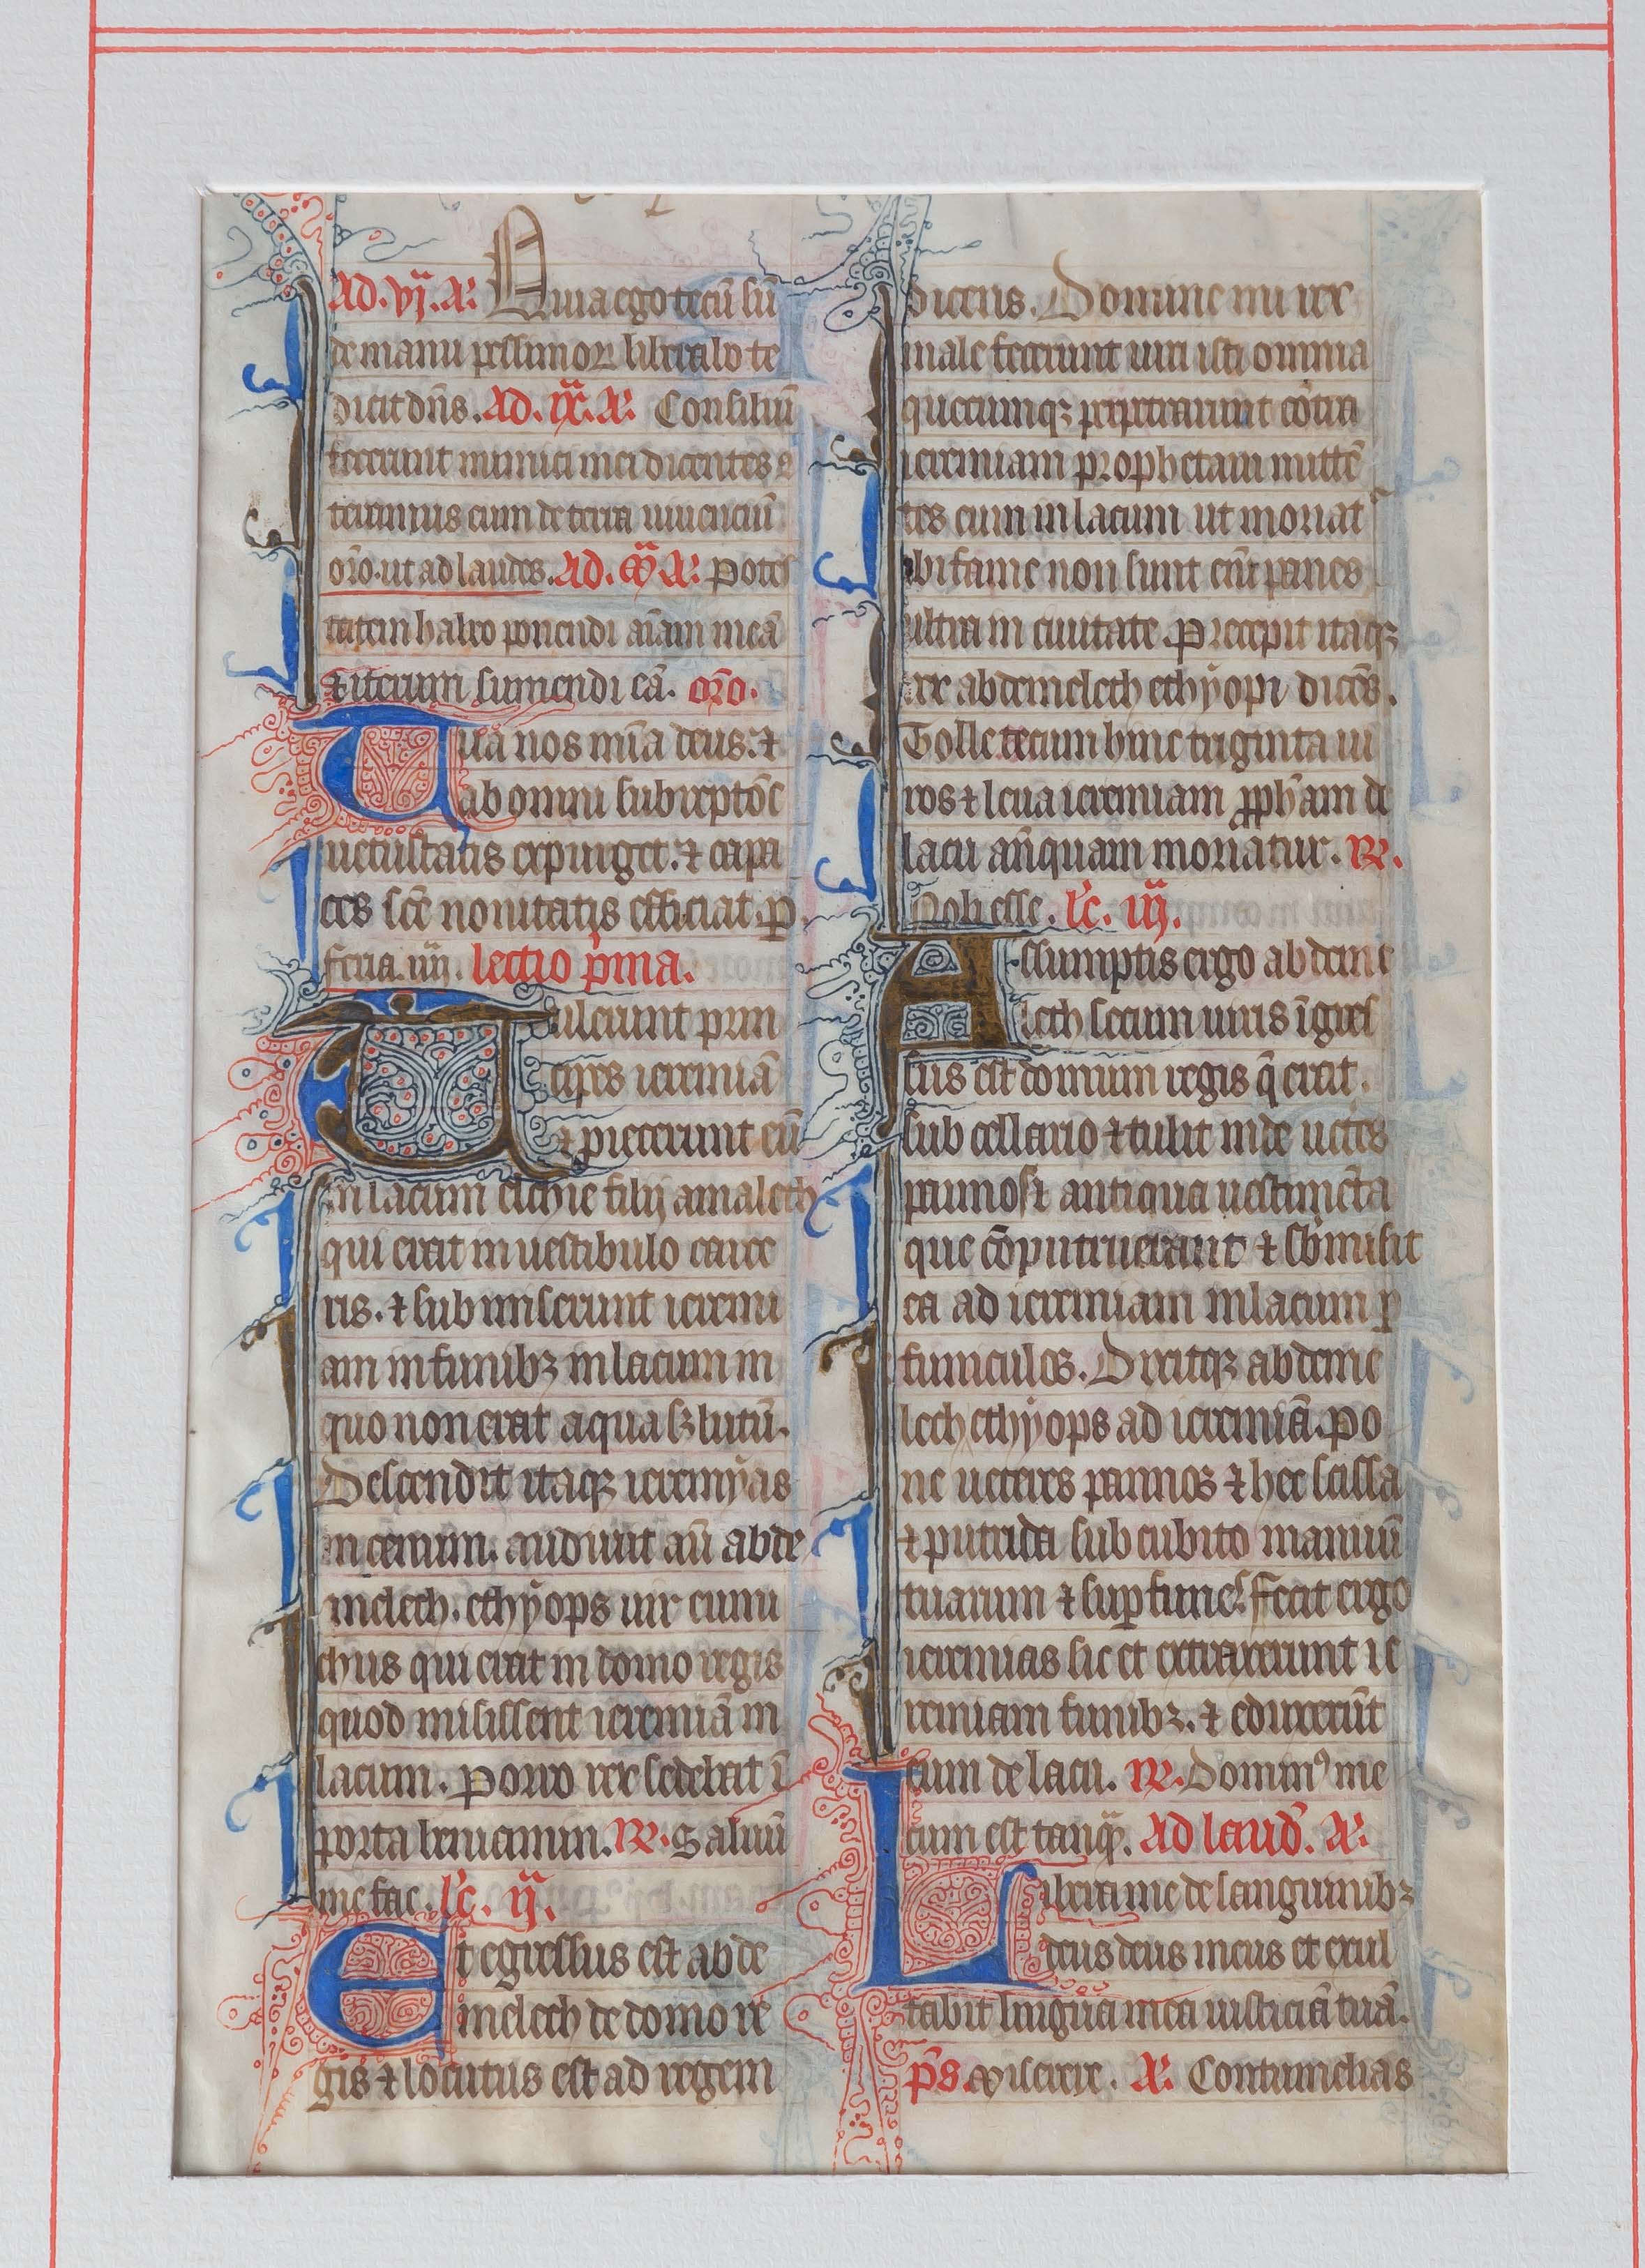 Ad. vj. A. Quia ego tecū sū
de manu pessimoꝝ liberabo te
dicit dn̄s. Ad. ix. A. Consiliū
fecerunt inimici mei dicentes
teramus eum de terra uiuenciū
or̄o. ut ad laudes. Ad. ꝳ A. Potes
tatem habeo ponendi aīam meā
⁊ iterum sumendi eā. oro.
Tua nos mīa deus: ⁊
ab omni subreptōe
uetustatis expurget. ⁊ capa
ces scē nouitatis efficiat. ꝑ.
feria. iiij. lectio p̄ma.
Tulerunt prin
cipes ieremiā
⁊ proiecerunt eū
in lacum elchie filij amalech
qui erat in uestibulo carce
ris. ⁊ submiserunt ieremi
am in funibꝫ in lacum in
quo non erat aqua sꝫ lutū.
Descendit itaqꝫ ieremyas
in cenum. audiuit aū abde
melech. ethyops uir eunu
chus qui erat in domo regis
quod misissent ieremiā in
lacum. Porro rex sedebat ī
porta beniamin. ℟. Saluū
me fac. lc̄. ij.
Et egressus est abde
melech de domo re
gis ⁊ locutus est ad regem
dicens. Domine mi rex
male fecerunt uiri isti omnia
quecumqꝫ perpetrarunt cōtra
ieremiam prophetam mittē
tes eum in lacum ut moriat᷑
ibi fame non sunt eni᷑ panes
ultra in ciuitate. Precepit itaqꝫ
rex abdemelech ethyopi dicēs.
Tolle tecum hinc triginta ui
ros ⁊ leua ieremiam ꝓph̄am de
lacu an̄quam moriatur. ℟.
Noli esse. lc̄. iij.
Assumptis ergo abdeme
lech secum uiris īgres
sus est domum regis q̄ erat.
sub cellario ⁊ tulit inde uetēs
pannos ⁊ antiqua uestimēta
que cōputruerant ⁊ sb̄misit
ea ad ieremiam in lacum ꝑ
funiculos. Dixitqꝫ abdeme
lech ethyops ad ieremiā. Po
ne ueteres pannos ⁊ hec scissa
⁊ putrida sub cubito manuū
tuarum ⁊ suꝑ funes. Fecit ergo
ieremias sic et extraxerunt ie
remiam funibꝫ. ⁊ eduxerūt
eum de lacu. ℟. Dominꝰ me
cum est tanq̄. Ad laud̄. A.
Libera me de sanguinibꝫ
deus deus meus et exul
tabit lingua mea iusticiā tuā.
p̄s. Miserere. A. Contumelias